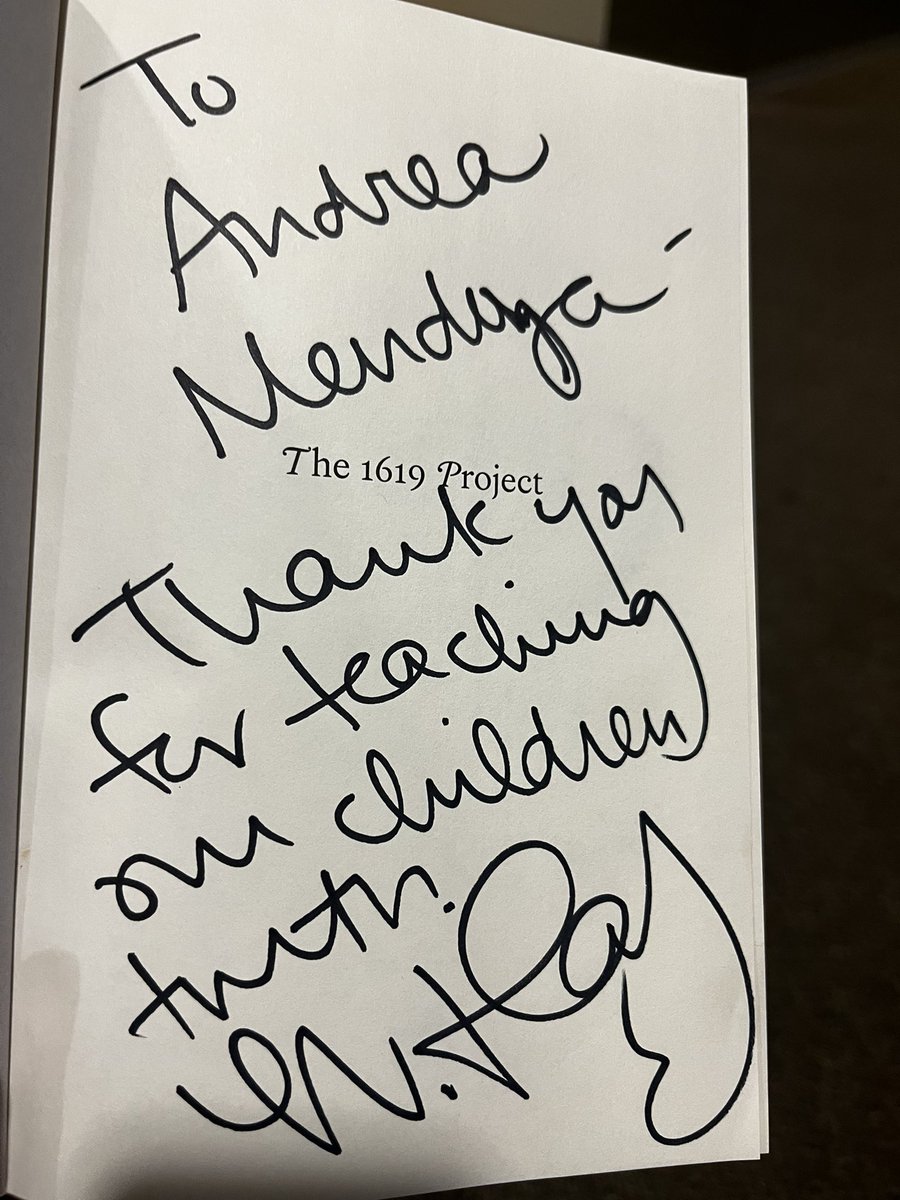 To
Andrea
Mendoza -
The 1619 Project
Thank you
for teaching
our children
truth.